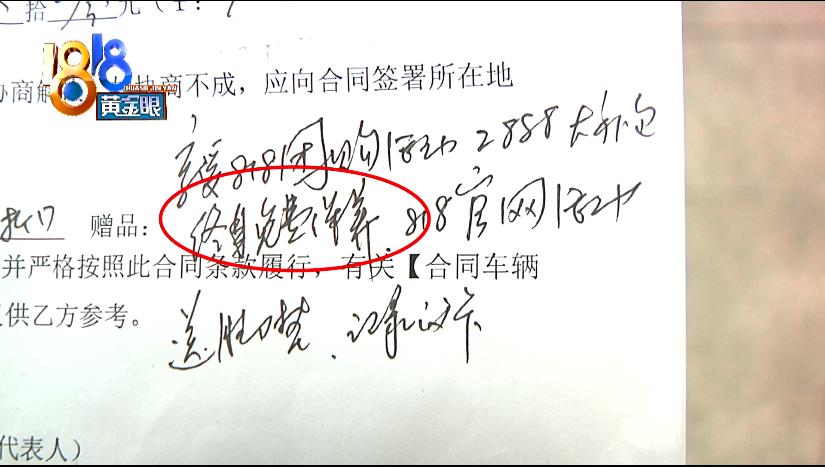 拾 元（1：
1818
HUANG JIN YAN
黄金眼
协商不成，应向合同签署所在地
享受818团购活动 2888大礼包
赠品：终身免费保养. 818官网活动
并严格按照此合同条款履行，有关【合同车辆
供乙方参考。
送
代表人）